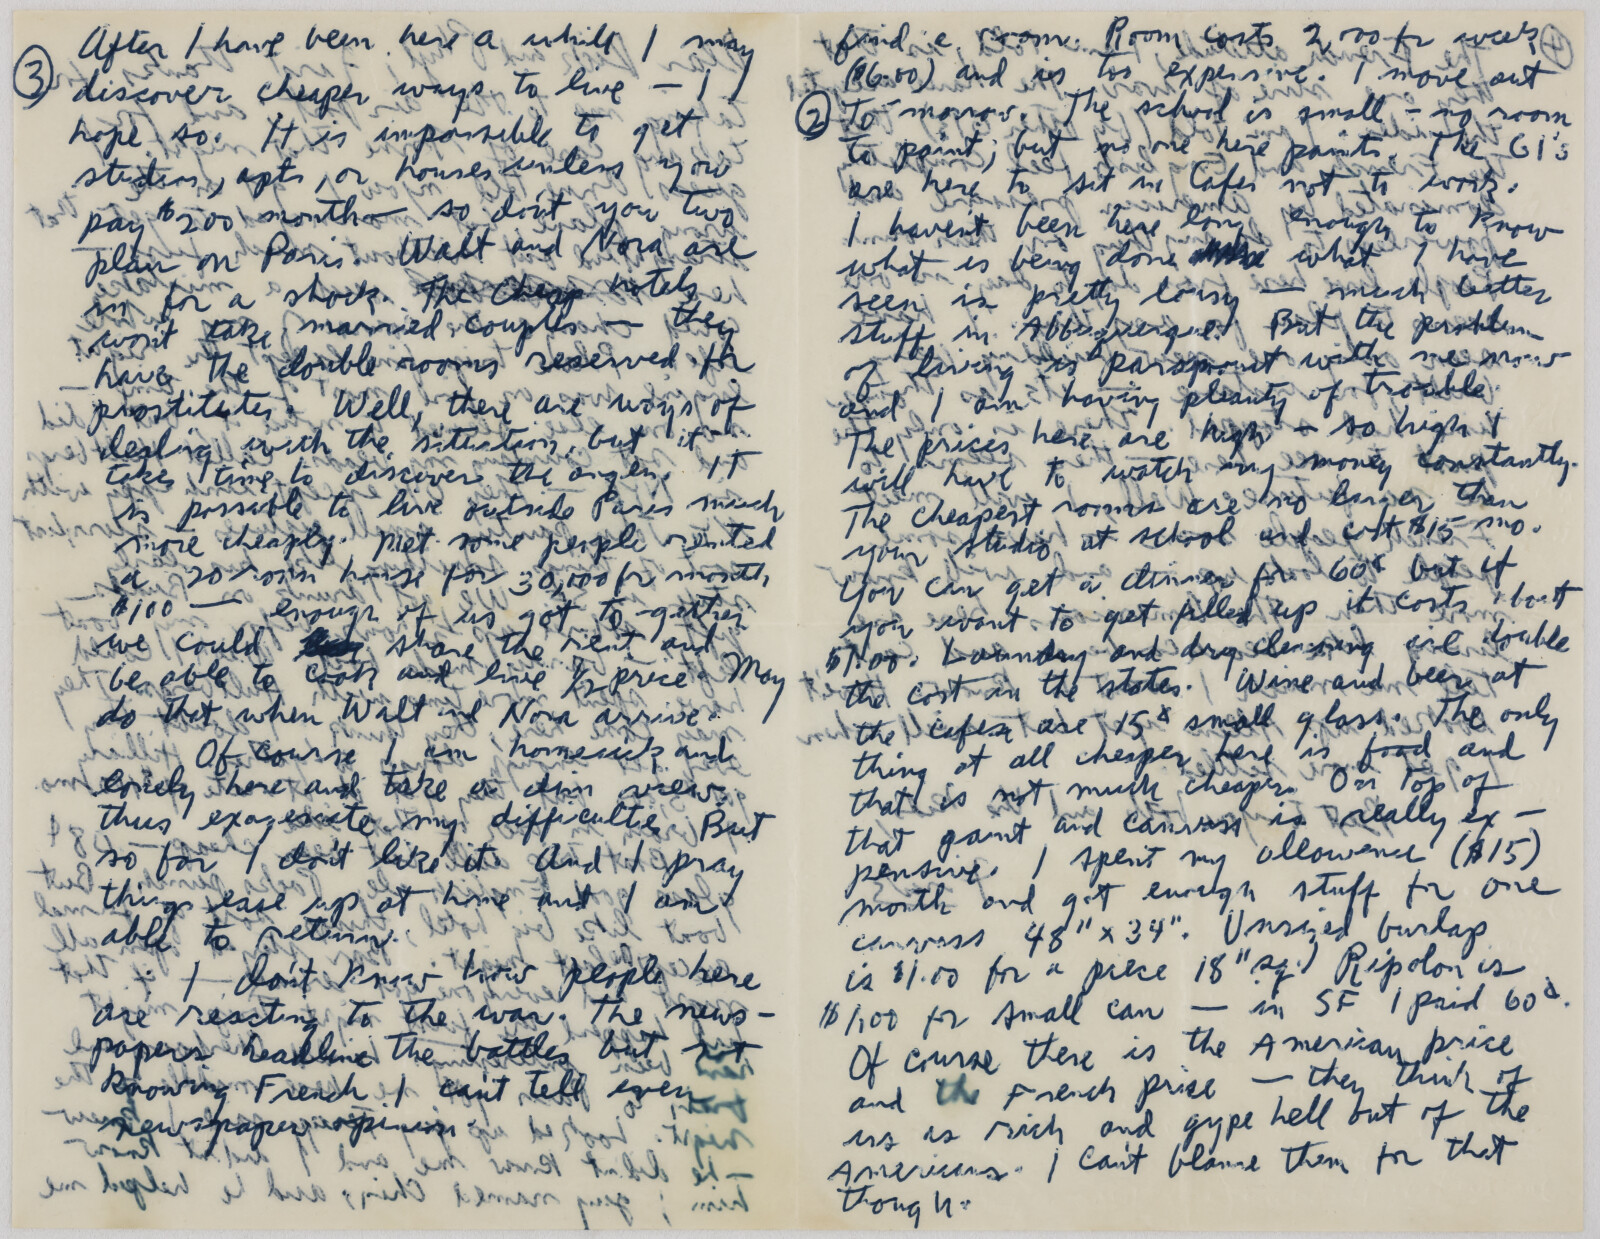 find a room. Room costs 2,000 fr week
($6.00) and is too expensive. I move out
② To-morrow. The school is small – no room
to paint; but no one here paints. The GI's
are here to sit in Cafes not to work.
I havent been here long enough to know
what is being done what I have
seen is pretty lousy — much better
stuff in Albuquerque. But the problem
of living is paramount with me now
and I am having pleanty of trouble.
The prices here are high – so high I
will have to watch my money constantly.
The cheapest rooms are no larger than
your studio at school and cost $15 mo.
You can get a dinner for 60¢ but if
you want to get filled up it costs
$1.00. Laundry and dry cleaning are double
the cost in the states. Wine and beer at
the cafes are 15¢ small glass. The only
thing at all cheaper here is food and
that is not much cheaper. On top of
that paint and canvass is really ex –
pensive. I spent my allowence ($15)
month and got enough stuff for one
canvass 48" x 34". Unsized burlap
is $1.00 for a piece 18" sq.) Ripolon is
$1.00 for small can — in SF I paid 60¢.
Of course there is the American price
and the French price — they think of
us as rich and gype hell out of the
Americans. I can't blame them for that
though.
③ After I have been here a while I may
discover cheaper ways to live – I
hope so. It is impossible to get
studios, apts, or houses unless you
pay $200 month – so don't you two
plan on Paris. Walt and Nora are
in for a shock. The Cheap hotels
won't take married couples — they
have the double rooms reserved for
prostitutes. Well, there are ways of
dealing with the situation, but it
takes time to discover the angles. It
is possible to live outside Paris much
more cheaply. Met some people rented
a 20 room house for 30,000 fr month
$100 — enough of us got to-gether
we could share the rent and
be able to cook and live ½ price. May
do that when Walt and Nora arrive.
Of course I am homesick and
lonely here and take a dim view
thus exagerate my difficulties. But
so far I don't like it. And I pray
things ease up at home and I am
able to return.
I don't know how people here
are reacting to the war. The news –
papers headline the battles but not
knowing French I can't tell even
newspaper opinion